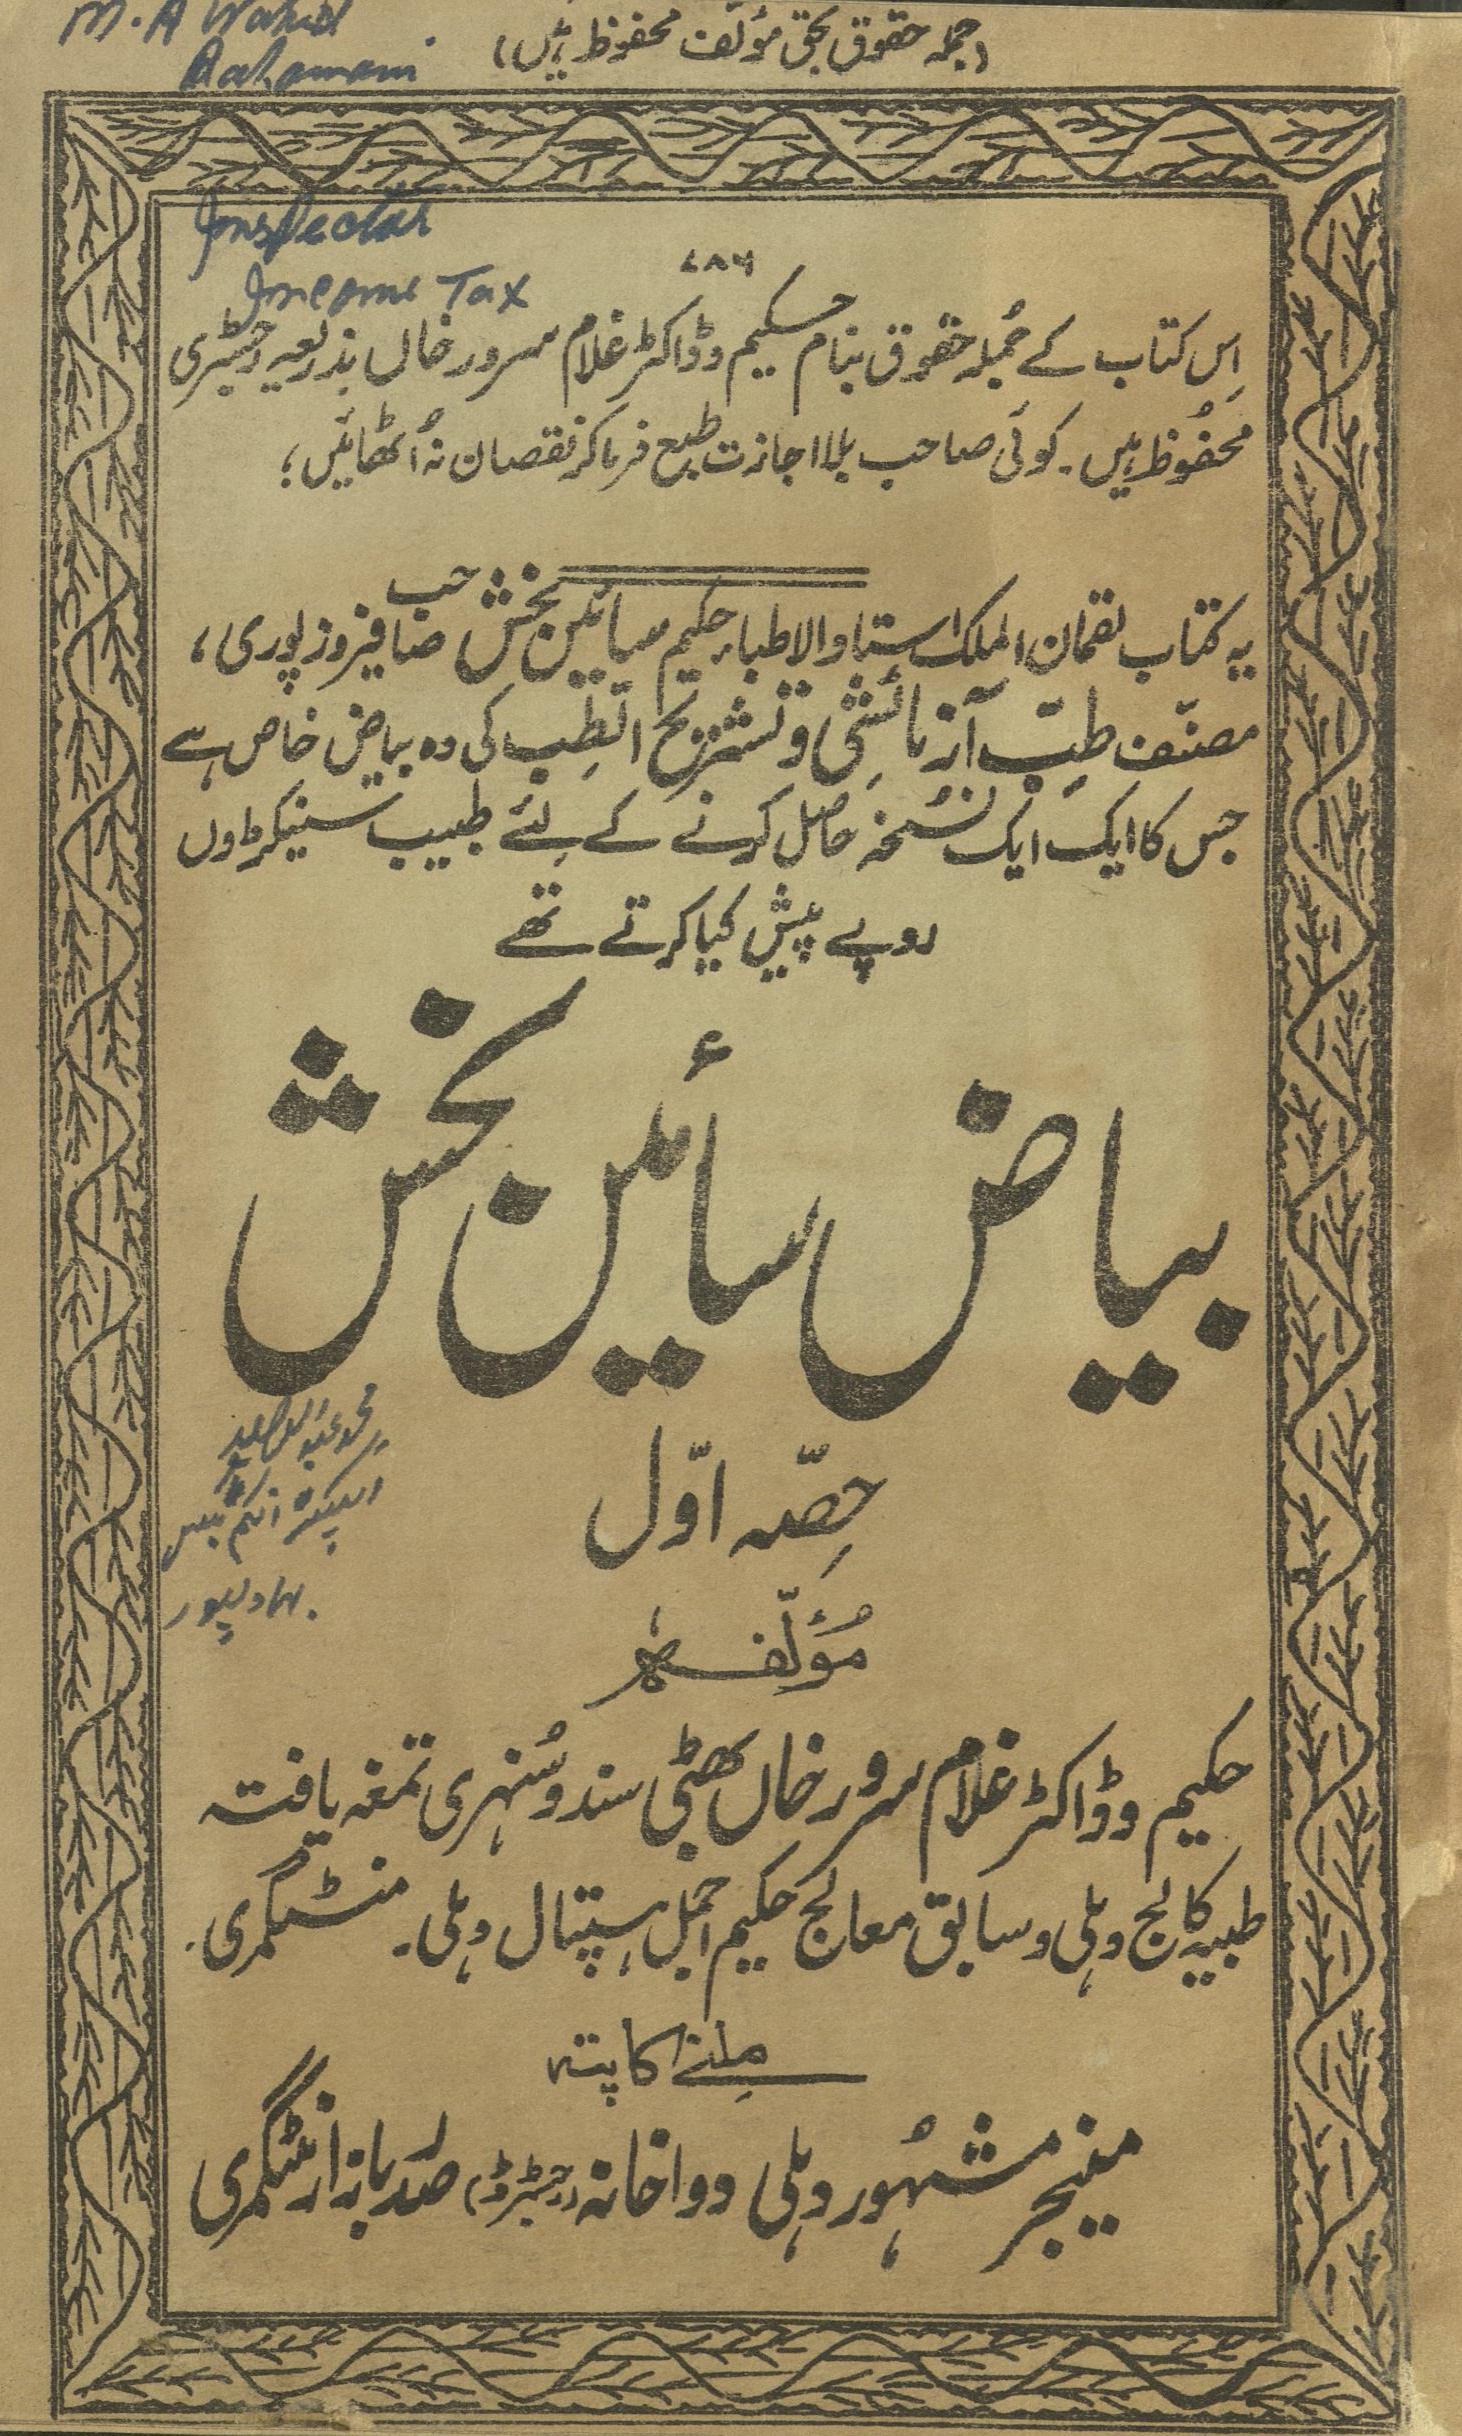 M. A Wahid
(جملہ حقوق بحق مؤلف محفوظ ہیں)
Inspector
Income Tax
۷۸۶
اِس کتاب کے جُملہ حقوق بنام حکیم وڈاکٹر غلام سرور خاں بذریعہ رجسٹری
محفُوظ ہیں۔ کوئی صاحب بلا اجازت طبع فرماکر نقصان نہ اُٹھائیں؛
یہ کتاب لقمان الملک استاد الاطباء حکیم سائیں بخش صاحب فیروز پوری،
مصنّف طبِّ آزمائشی و تشریح الطِب کی وہ بیاض خاص ہے
جس کا ایک ایک نُسخہ حاصل کرنے کے لئے طبیب سینکڑوں
روپے پیش کیا کرتے تھے
بیاض سائیں بخش
حِصّہ اوّل
مُؤلّفہ
حکیم وڈاکٹر غلام سرور خاں بھٹی سند و سُنہری تمغہ یافتہ
طبیہ کالج دہلی و سابق معالج حکیم اجمل ہسپتال دہلی۔ منٹگمری۔
مِلنے کا پتہ
مینیجر مشہُور دہلی دواخانہ (رجسٹرڈ) صدر بازار منٹگمری
محمد عبدالوحید
انسپکٹر انکم ٹیکس
بہاولپور